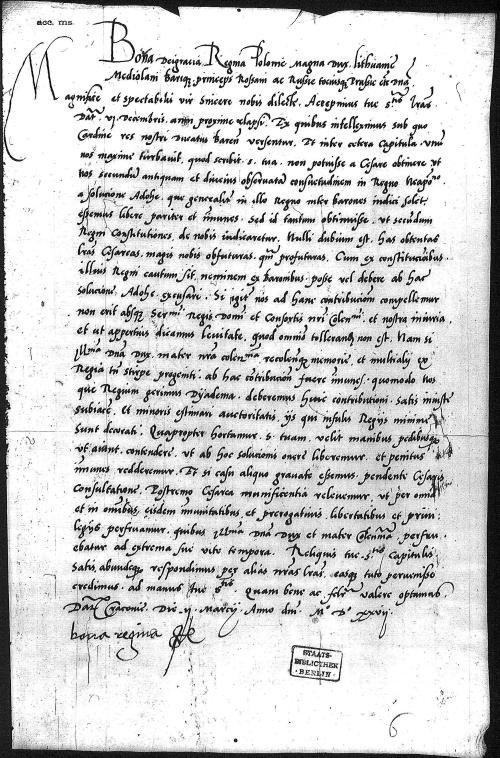 acc. ms.
Bona Dei gracia Regina Polonie Magna Dux lithuanie
Mediolani Barique princeps Rossani ac Russie tociusque Prussie etc dna
Magnifice et spectabilis vir sincere nobis dilecte. Accepimus tue s. lras
Dat vi decembris anni proxime elapsi. Ex quibus intelleximus sub quo
Cardine res nostri Ducatus Baren versentur. Et inter cetera Capitula unum
nos maxime turbavit, quod scribit s. tua. non potuisse a Cesare obtinere ut
nos secundum antiquam et diucius observatam consuetudinem in Regno Neapno
a solucione Adohe, que generaliter in illo Regno inter barones indici solet
essemus libere pariter et imunes. sed id tantum obtinuisse. ut secundum
Regni Constitutiones, de nobis iudicaretur. Nulli dubium est, has obtentas
lras Cesareas, magis nobis obfuturas, qm profuturas. Cum ex constitucionibus
illius Regni cautum sit, neminem ex baronibus posse vel debere ab hac
solucione Adohe excusari. Si igit nos ad hanc contribucionem compellemur
non erit absque Sermi Regis Domini et Consortis nri Colenmi et nostra iniuria,
et ut apertius dicamus levitate, quod omnino tollerandum non est. Nam si
Illma Dna Dux mater nra colenma recolende memorie, et multi alii ex
Regia tm stirpe progeniti ab hac contribucion fuere imunes. quomodo nos
que Regium gerimus Dyadema, deberemus huic contribucioni satis iniuste
subiacere, Et minoris estimari auctoritatis, ijs qui insulis Regijs minime
sunt decorati. Quapropter hortamur s. tuam. velit manibus pedibusque
ut aiunt, contendere. ut ab hoc solucionis onere liberemur. et penitus
imunes redderemur. Et si casu aliquo gravate essemus, pendenti Cesaris
Consultatione, Postremo Cesarea munificentia relevemur. ut per omnia
et in omnibus, eisdem imunitatibus, et prerogativis, libertatibus et privi-
legijs perfruamur. quibus Illma Dna Dux et mater Colenma, perfru-
ebatur ad extrema sue vite tempora. Reliquis tue s. Capitulis
satis abundeque respondimus per alias nras lras, easque tuto pervenisse
credimus, ad manus tue s. Quam bene ac feliciter valere optamus.
Dat Cracovie Die ij Marcij Anno dni M D xxvij
bona regina
STAATS-
BIBLIOTHEK
BERLIN
6